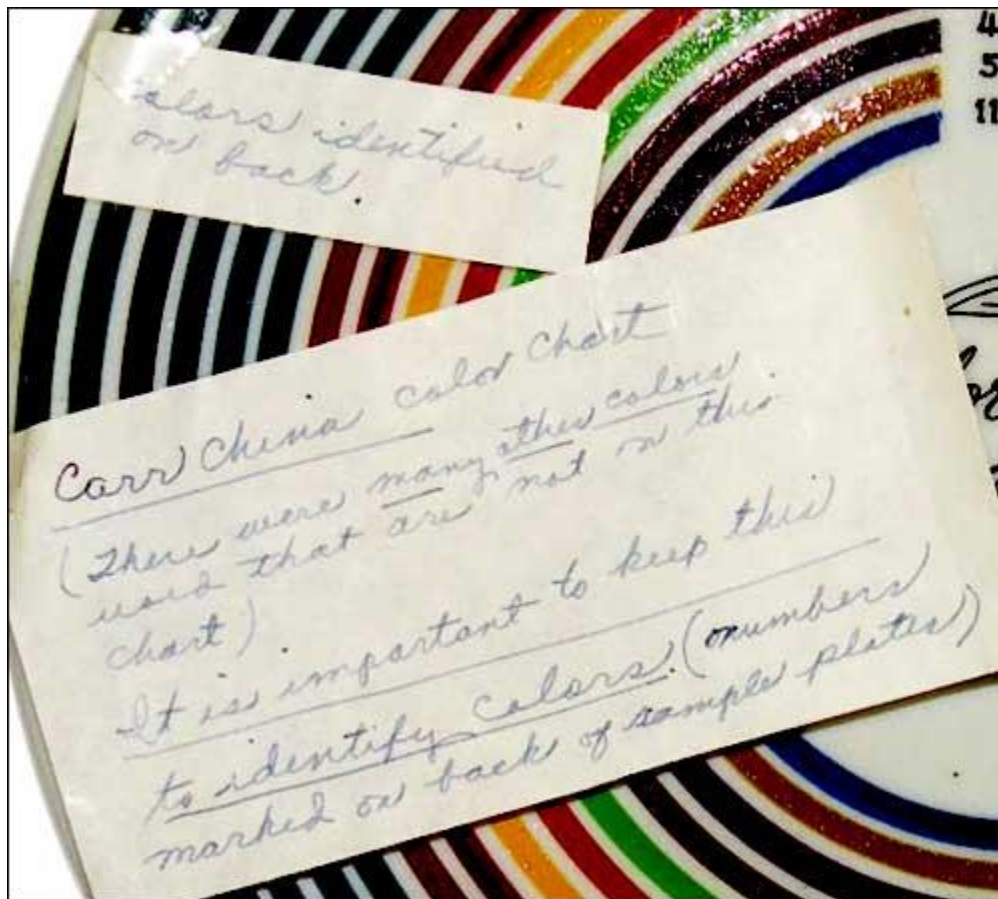 Colors identified
on back.
4
5
11
Carr China color Chart
(There were many other colors
used that are not on this
chart)
It is important to keep this
to identify colors. (numbers
marked on back of sample plates)